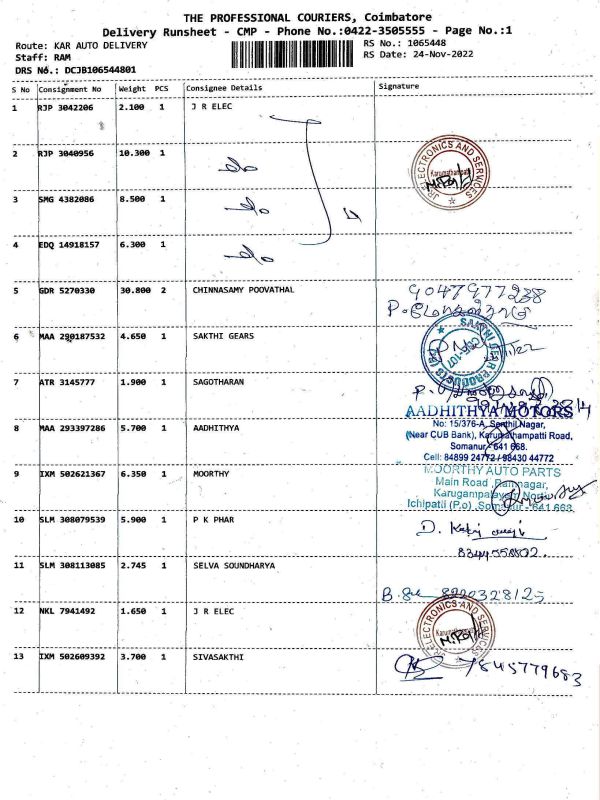 THE PROFESSIONAL COURIERS, Coimbatore
Delivery Runsheet - CMP - Phone No.:0422-3505555 - Page No.:1
Route: KAR AUTO DELIVERY
RS No.: 1065448
Staff: RAM
RS Date: 24-Nov-2022
DRS No.: DCJB106544801
S No Consignment No Weight PCS Consignee Details Signature
1 RJP 3042206 2.100 1 J R ELEC
2 RJP 3040956 10.300 1 do
JR ELECTRONICS AND SERVICES
Karumathampatti
3 SMG 4382086 8.500 1 do
4 EDQ 14918157 6.300 1 do
5 GDR 5270330 30.800 2 CHINNASAMY POOVATHAL 9047977238
6 MAA 290187532 4.650 1 SAKTHI GEARS
SAKTHI GEAR PRODUCTS
CBE-107
7 ATR 3145777 1.900 1 SAGOTHARAN
8 MAA 293397286 5.700 1 AADHITHYA
AADHITHYA MOTORS
No: 15/376-A, Senthil Nagar,
(Near CUB Bank), Karumathampatti Road,
Somanur - 641 668.
Cell: 84899 24772 / 98430 44772
9 IXM 502621367 6.350 1 MOORTHY
MOORTHY AUTO PARTS
Main Road, Ramnagar,
Karugampalayam
Ichipatti (P.o), Somanur - 641 668.
10 SLM 308079539 5.900 1 P K PHAR
11 SLM 308113085 2.745 1 SELVA SOUNDHARYA
12 NKL 7941492 1.650 1 J R ELEC
JR ELECTRONICS AND SERVICES
13 IXM 502609392 3.700 1 SIVASAKTHI 7845779683